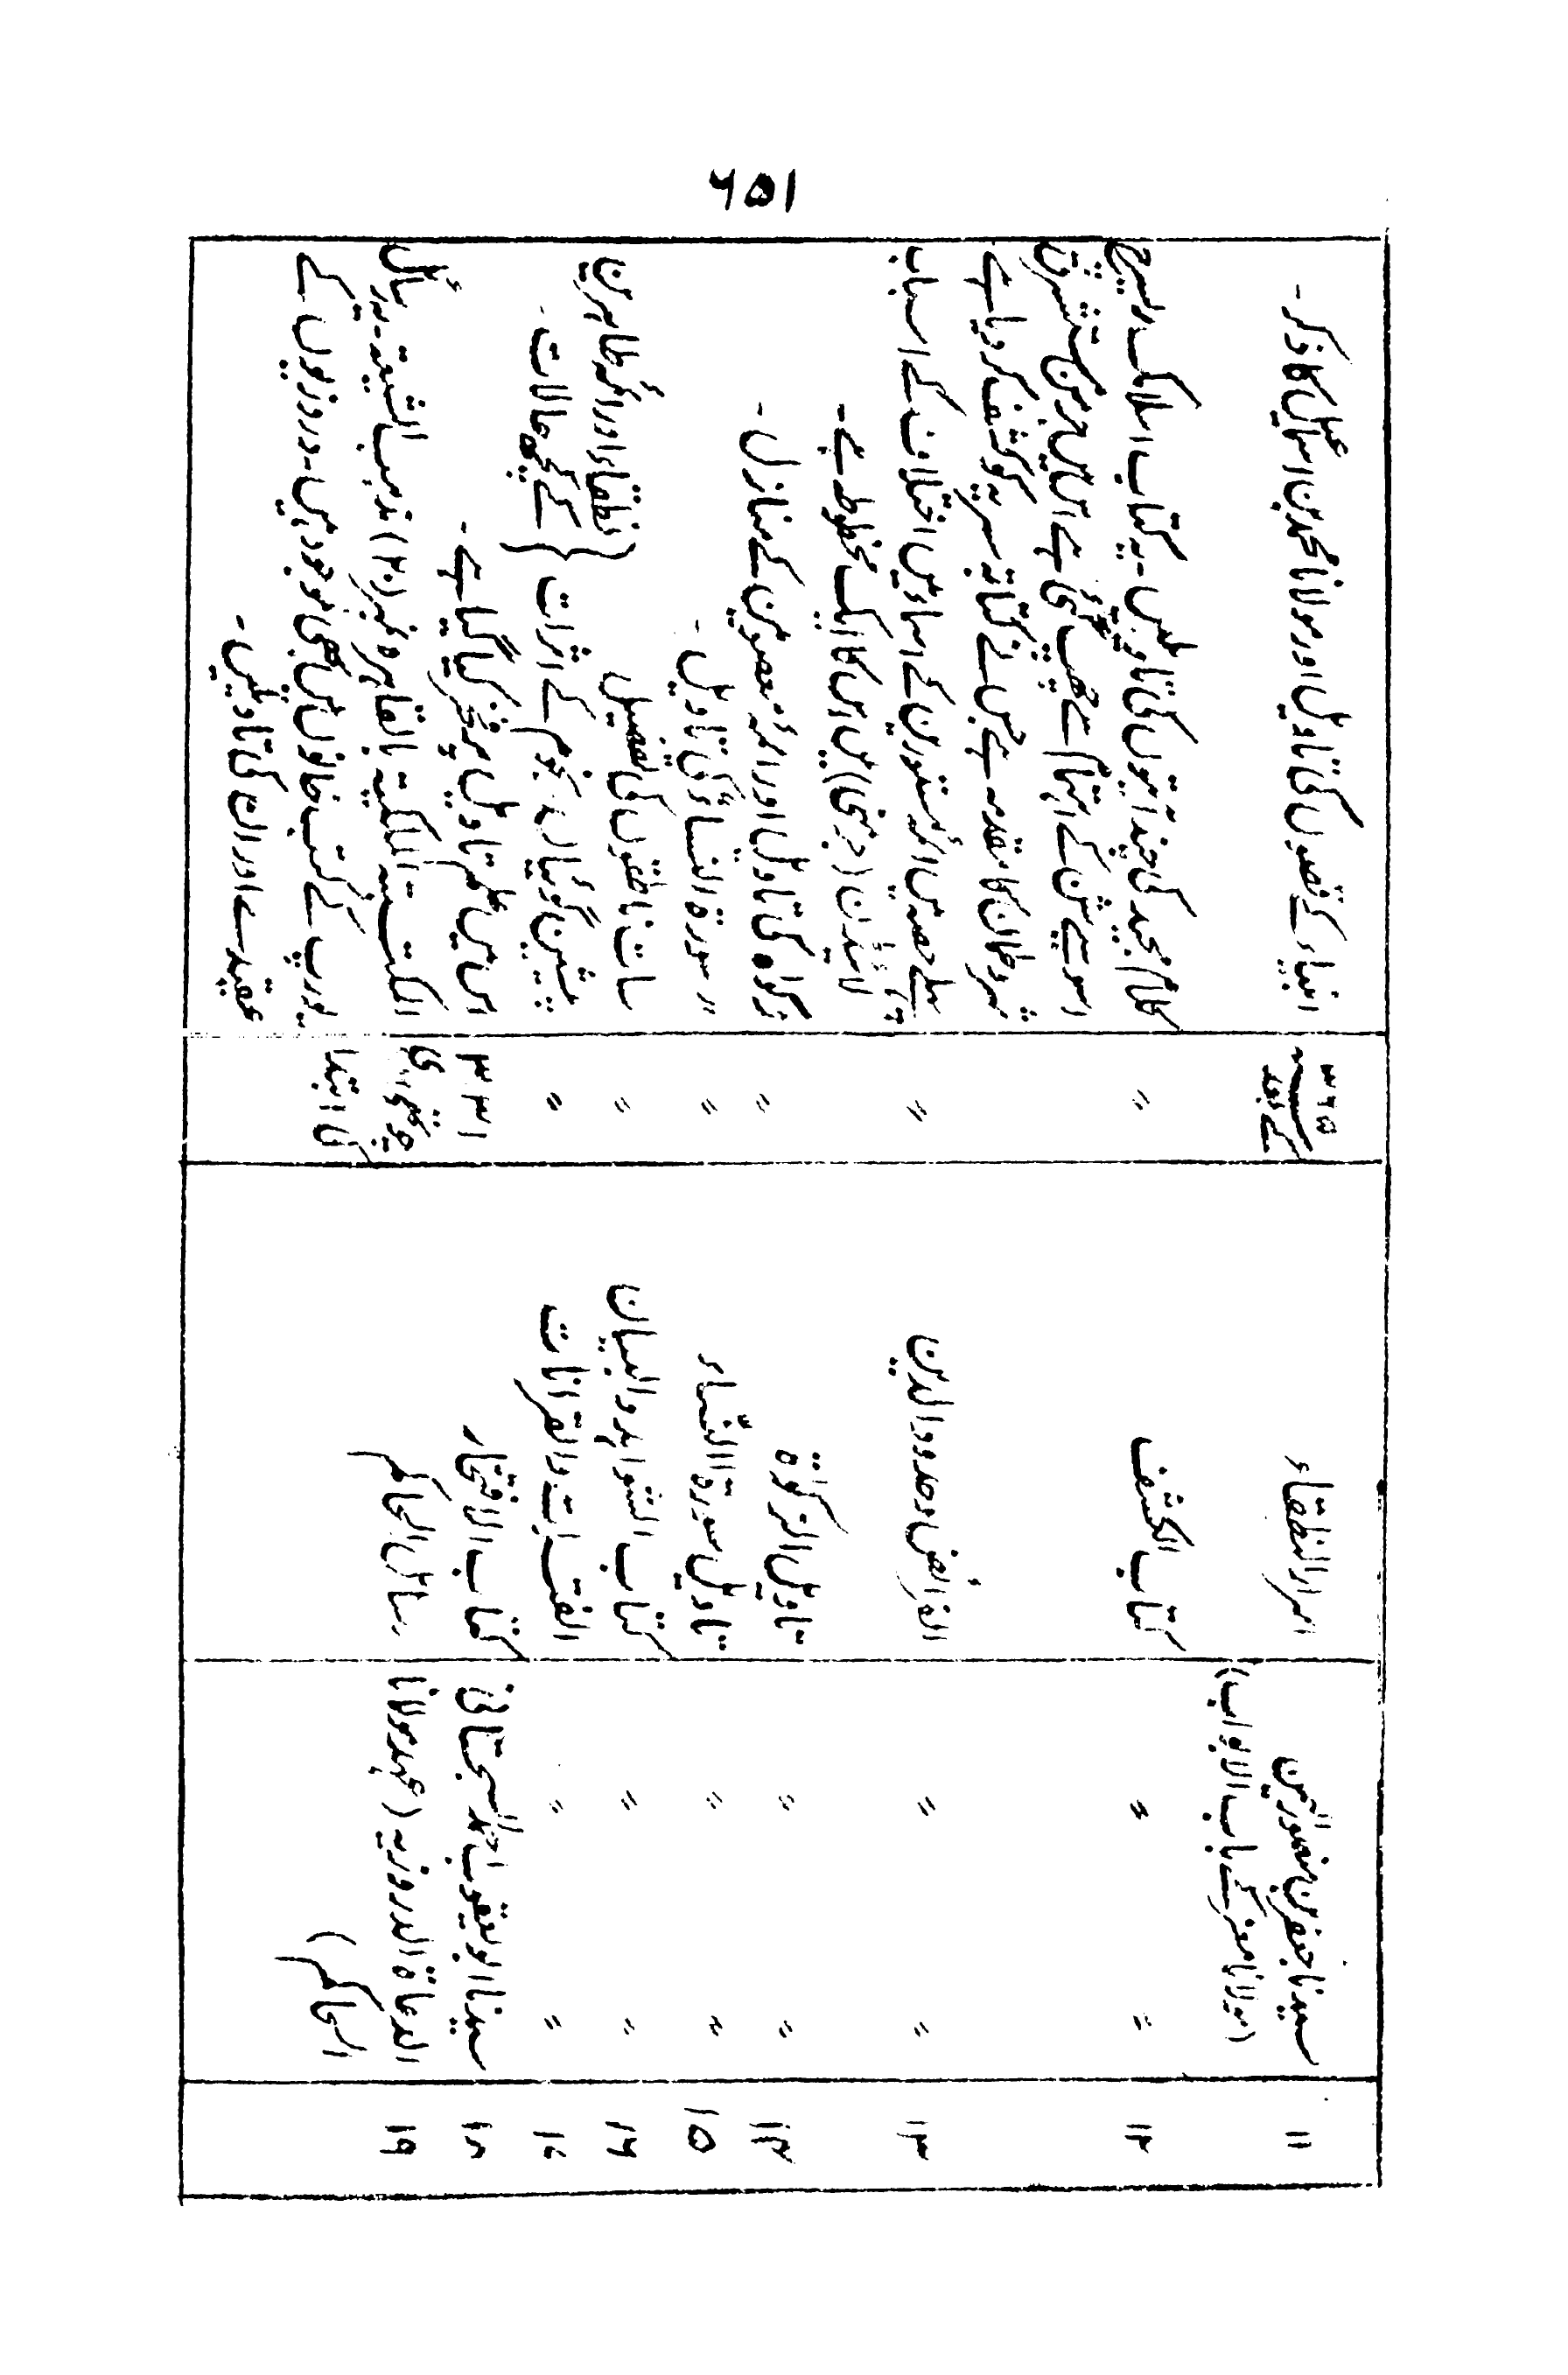 ۶۵۱
۱۱ سیدنا جعفر بن منصور الیمن
(مولانا معز کے باب الابواب)
اسرار النطقاء
۳۶۵
کے بعد
انبیاء کے قصوں کی تاویل اور مولانا محمد بن اسماعیل کا ذکر۔
۱۲ " " کتاب الکشف "
کلام مجید کی چند آیتوں کی تاویلیں۔ یہ کتاب اسلامک ریسرچ
اسوسیشن کے اہتمام سے چھپ گئی ہے اس میں جرمن مستشرق
شروطمان کا مقدمہ ہے جس نے کتابہ سریہ کو کشف کر دیا ہے
۱۳ " " الفرائض وحدود الدین "
پہلے حصہ میں ائمہ مستورین کے اسماء میں اختلاف کے اسباب
لائیڈن (جرمنی) میں اس کا ایک مخطوطہ ہے۔
۱۴ " " تاویل الزکوٰۃ "
زکواۃ کی تاویل اور ائمہ معصومین کے منازل۔
۱۵ " " تاویل سورۃ النساء "
سورۃ النساء کی تاویل۔
۱۶ " " کتاب الشواہد والبیان "
سات ناطقوں کی تفصیل
۱۷ " " الفترات والقرانات "
پیشین گوئیاں، نجوم کے اثرات
} نطقاء اور ائمہ طاہرین
کے کچھ حالات۔
۱۸ سیدنا ابو یعقوب احمد السجستانی کتاب الافتخار ۳۳۱
اس میں علم تاویل پر فخر کیا گیا ہے۔
۱۹ الدعاۃ الدروزیہ (عہد مولانا
الحاکم)
رسائل الحاکم
چوتھی صدی
کی ابتدا
المکتبۃ الملکیۃ بالقاہرہ نمبر (۲۰) مذہب الشیعۃ۔ یہ رسائل
یورپ کے کتب خانوں میں بھی موجود ہیں۔ دروزیوں کے
عقیدے اور ان کی تاویلیں۔